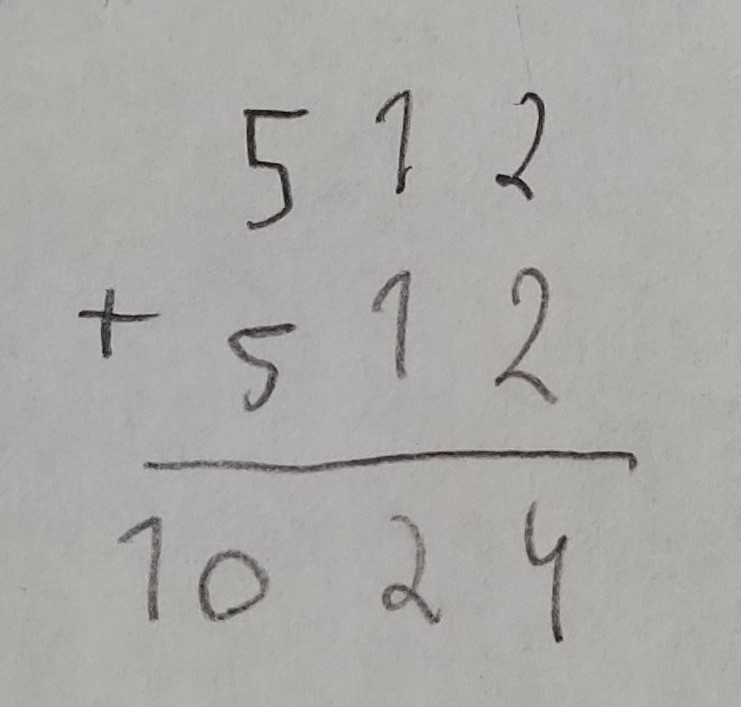 512
+ 512
1024